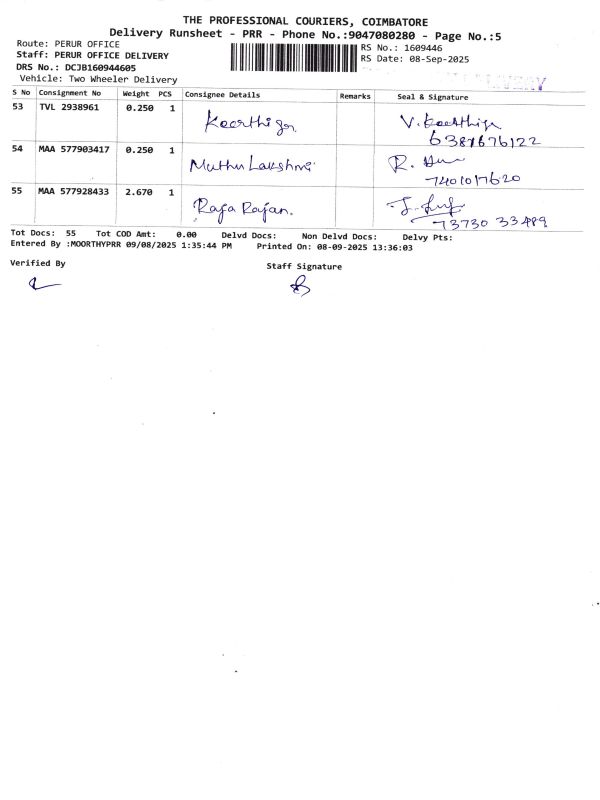 THE PROFESSIONAL COURIERS, COIMBATORE
Delivery Runsheet - PRR - Phone No.:9047080280 - Page No.:5
Route: PERUR OFFICE
Staff: PERUR OFFICE DELIVERY
DRS No.: DCJB160944605
Vehicle: Two Wheeler Delivery
RS No.: 1609446
RS Date: 08-Sep-2025
S No Consignment No Weight PCS Consignee Details Remarks Seal & Signature
53 TVL 2938961 0.250 1 V. Keerthiga
6387676122
54 MAA 577903417 0.250 1 Muthu Lakshmi R.
7401017620
55 MAA 577928433 2.670 1 Raja Rajan.
73730 33489
Tot Docs: 55 Tot COD Amt: 0.00 Delvd Docs: Non Delvd Docs: Delvy Pts:
Entered By :MOORTHYPRR 09/08/2025 1:35:44 PM Printed On: 08-09-2025 13:36:03
Verified By Staff Signature